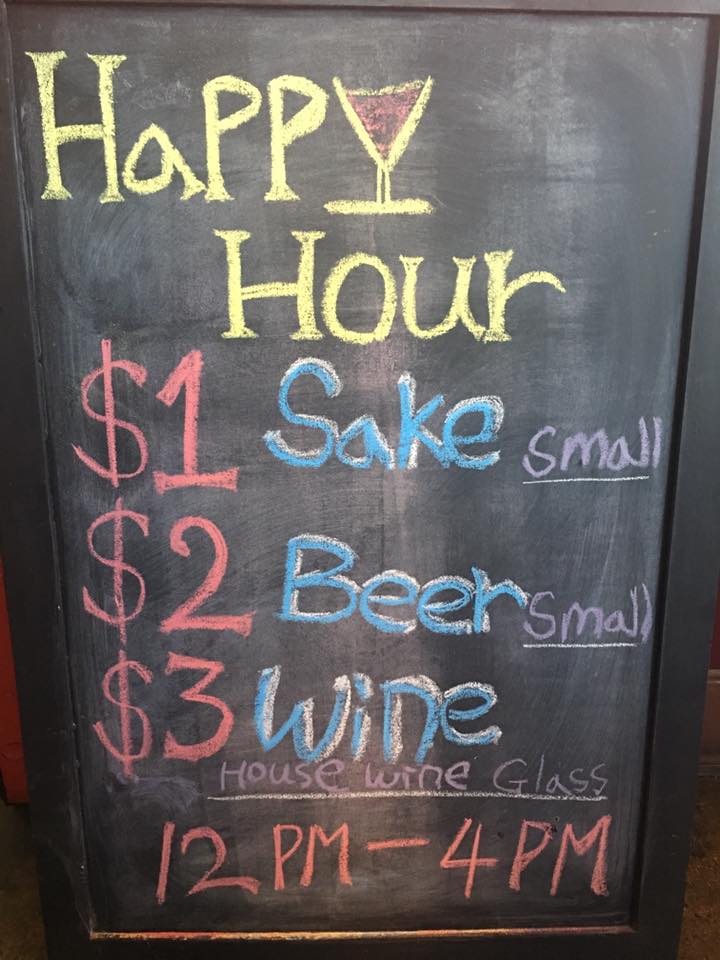 Happy
Hour
$1 Sake small
$2 Beer Small
$3 Wine
House wine Glass
12 PM - 4 PM